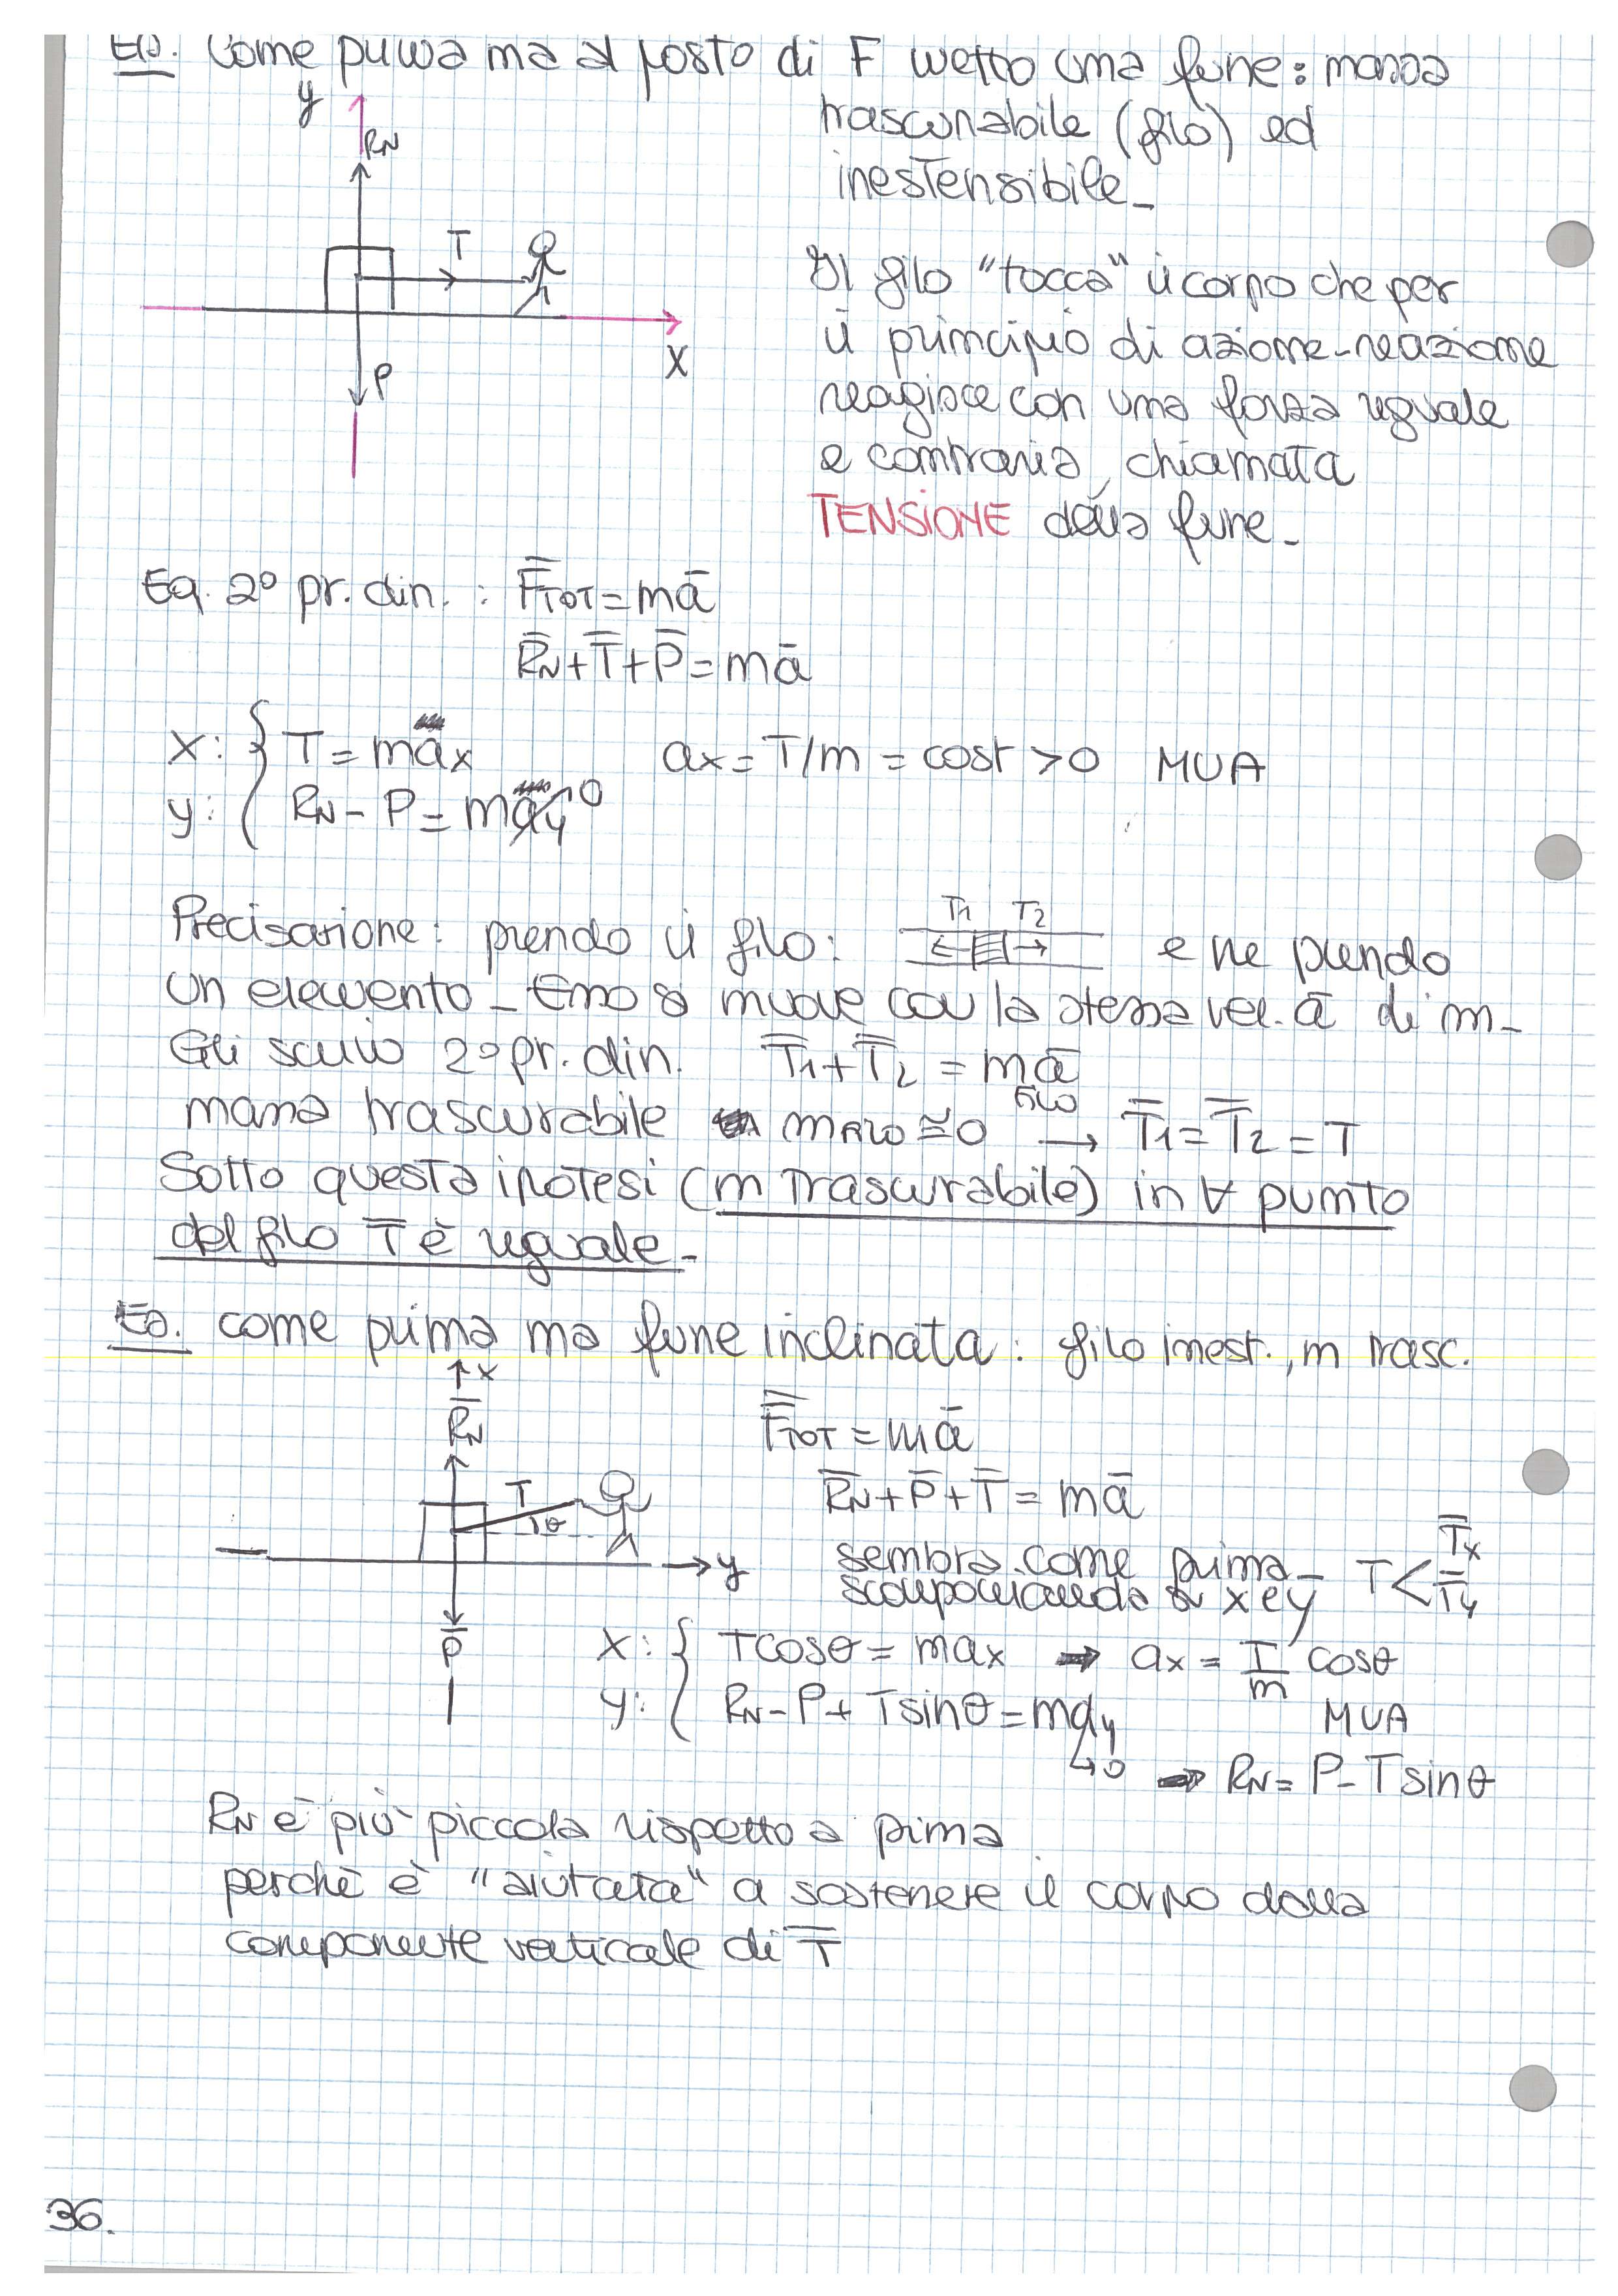 Es. Come prima ma al posto di F metto una fune: massa
trascurabile (filo) ed
inestensibile_
y
RN
T
P
X
Il filo "tocca" il corpo che per
il principio di azione-reazione
reagisce con una forza uguale
e contraria, chiamata
TENSIONE della fune_
Eq. 2° pr. din. : F̄TOT = mā
R̄N + T̄ + P̄ = mā
X: { T = max    ax = T/m = cost > 0  MUA
y: { RN - P = may 0
Precisazione: prendo il filo: T1 T2 e ne prendo
un elemento_ Esso si muove con la stessa vel. ā di m_
Gli scrivo 2° pr. din. T̄1 + T̄2 = mā
FILO
massa trascurabile mFILO ≅ 0 → T̄1 = T̄2 = T
Sotto questa ipotesi (m trascurabile) in ∀ punto
del filo T̄ è uguale_
Es. come prima ma fune inclinata: filo inest., m trasc.
x
R̄N
T
θ
y
P̄
F̄TOT = mā
R̄N + P̄ + T̄ = mā
sembra come prima_ T < T̄x T̄y
scomponiamola su x e y
X: { Tcosθ = max → ax = T/m cosθ
y: { RN - P + Tsinθ = may    MUA
↳0 → RN = P - Tsinθ
RN è più piccola rispetto a pima
perchè è "aiutata" a sostenere il corpo dalla
componente verticale di T̄
36.